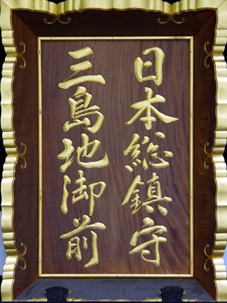 日本総鎮守
三島地御前